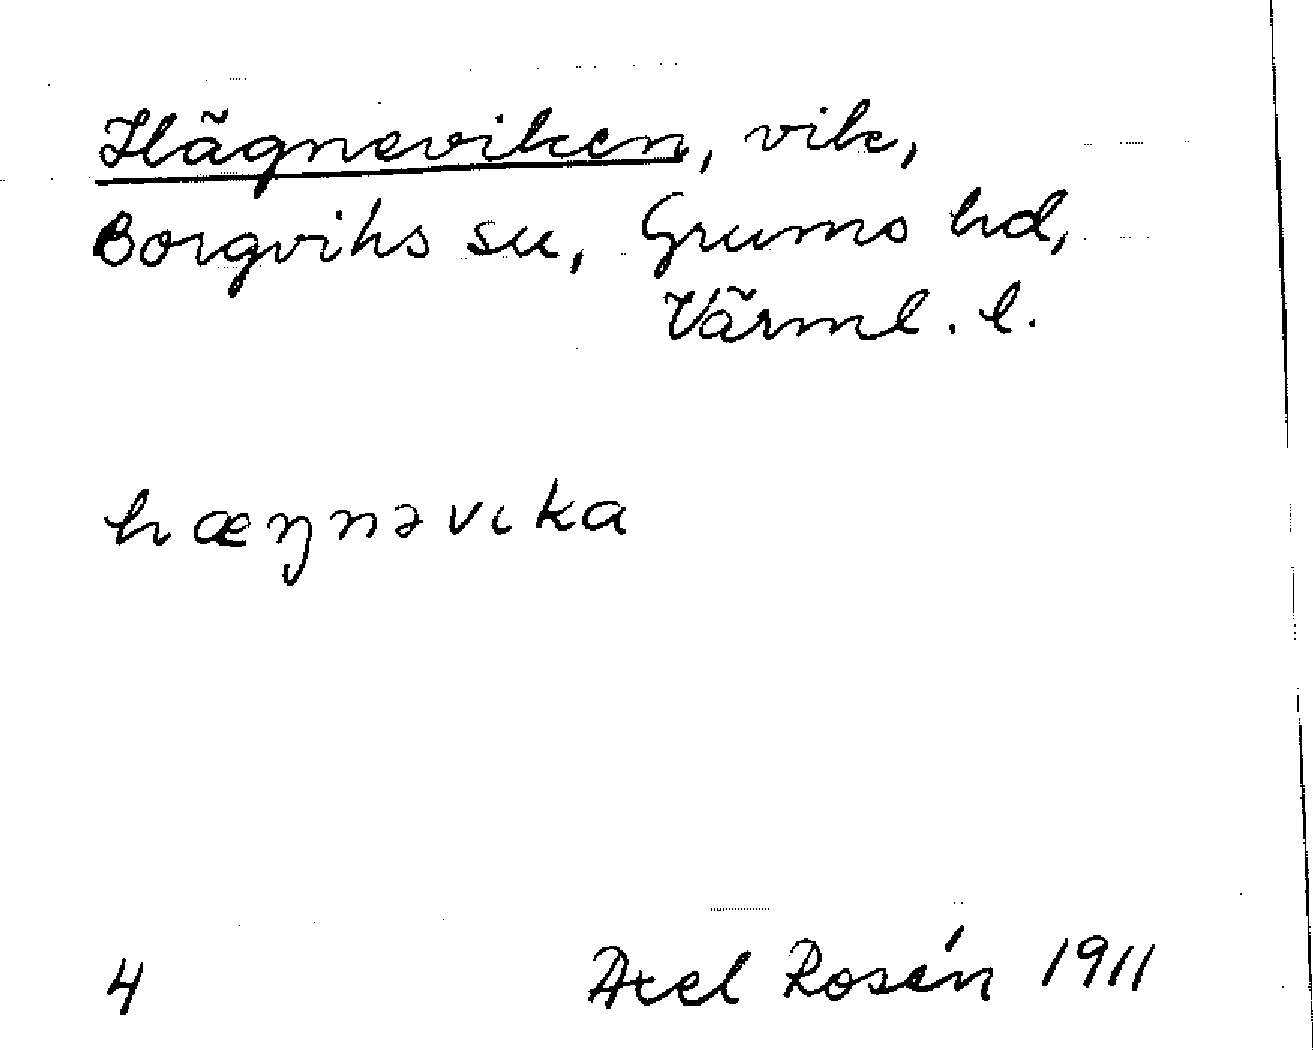 Hägneviken, vik,
Borgviks sn, Grums hd,
Värml. l.
hæŋnəvika
4 Axel Rosén 1911